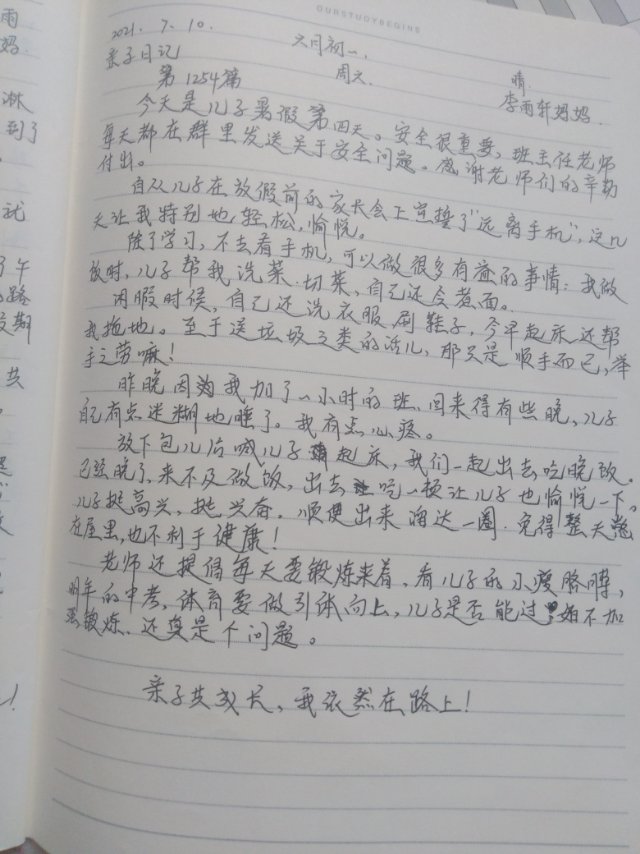 OURSTUDYBEGINS
2021. 7. 10. 六月初一.
亲子日记 周六. 晴.
第1254篇 李雨轩妈妈.
今天是儿子暑假第四天。安全很重要,班主任老师
每天都在群里发送关于安全问题。感谢老师们的辛勤
付出。
自从儿子在放假前的家长会上宣誓了"远离手机",这几
天让我特别地轻松,愉悦。
除了学习,不去看手机,可以做很多有益的事情:我做
饭时,儿子帮我洗菜.切菜,自己还会煮面。
闲暇时候,自己还洗衣服刷鞋子,今早起床还帮
我拖地。至于送垃圾之类的活儿,那只是顺手而已,举
手之劳嘛!
昨晚因为我加了一小时的班.回来得有些晚,儿子
自己有点迷糊地睡了。我有点心疼。
放下包儿后喊儿子起床,我们一起出去吃晚饭。
已经晚了,来不及做饭,出去吃一顿让儿子也愉悦一下。
儿子挺高兴,挺兴奋.顺便出来溜达一圈.免得整天憋
在屋里,也不利于健康!
老师还提倡每天要锻炼来着.看儿子的小瘦胳膊,
明年的中考,体育要做引体向上,儿子是否能过,如不加
强锻炼.还真是个问题。
亲子共成长,我依然在路上!
雨
妈.
淋
到了
就
午
路
期
共